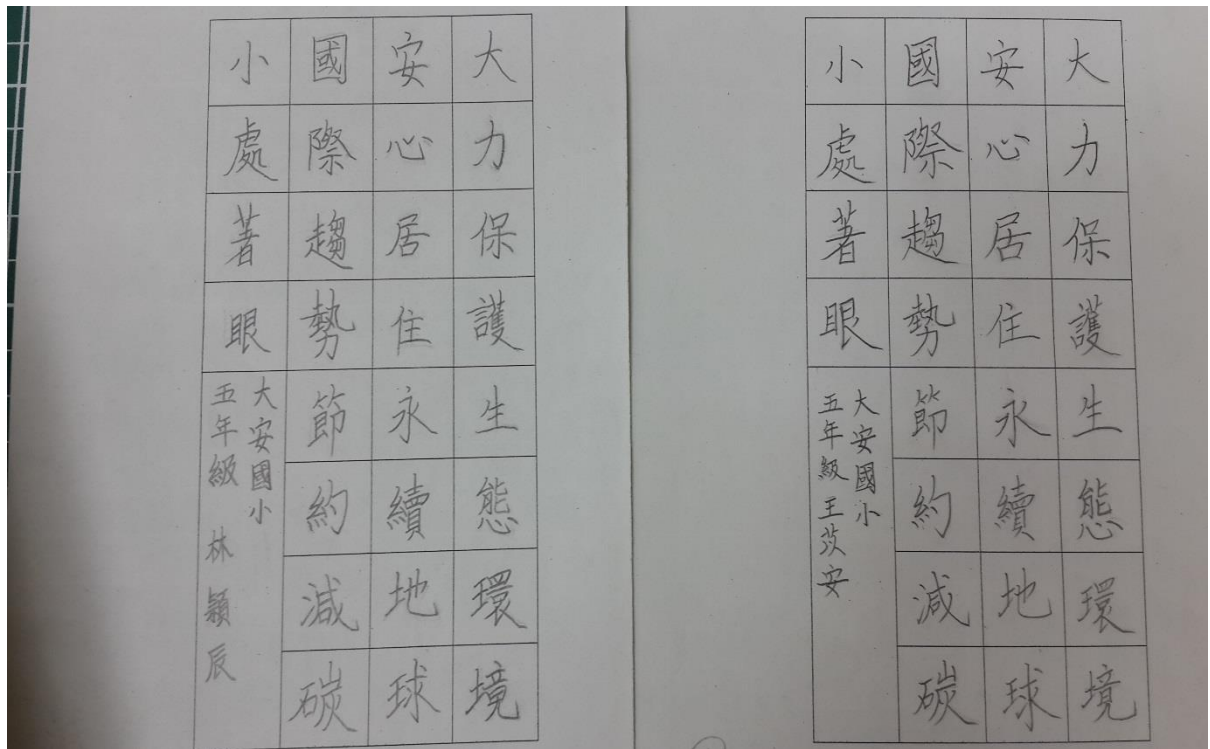 大力保護生態環境
安心居住永續地球
國際趨勢節約減碳
小處著眼
大安國小
五年級 林穎辰
大力保護生態環境
安心居住永續地球
國際趨勢節約減碳
小處著眼
大安國小
五年級 王苡安